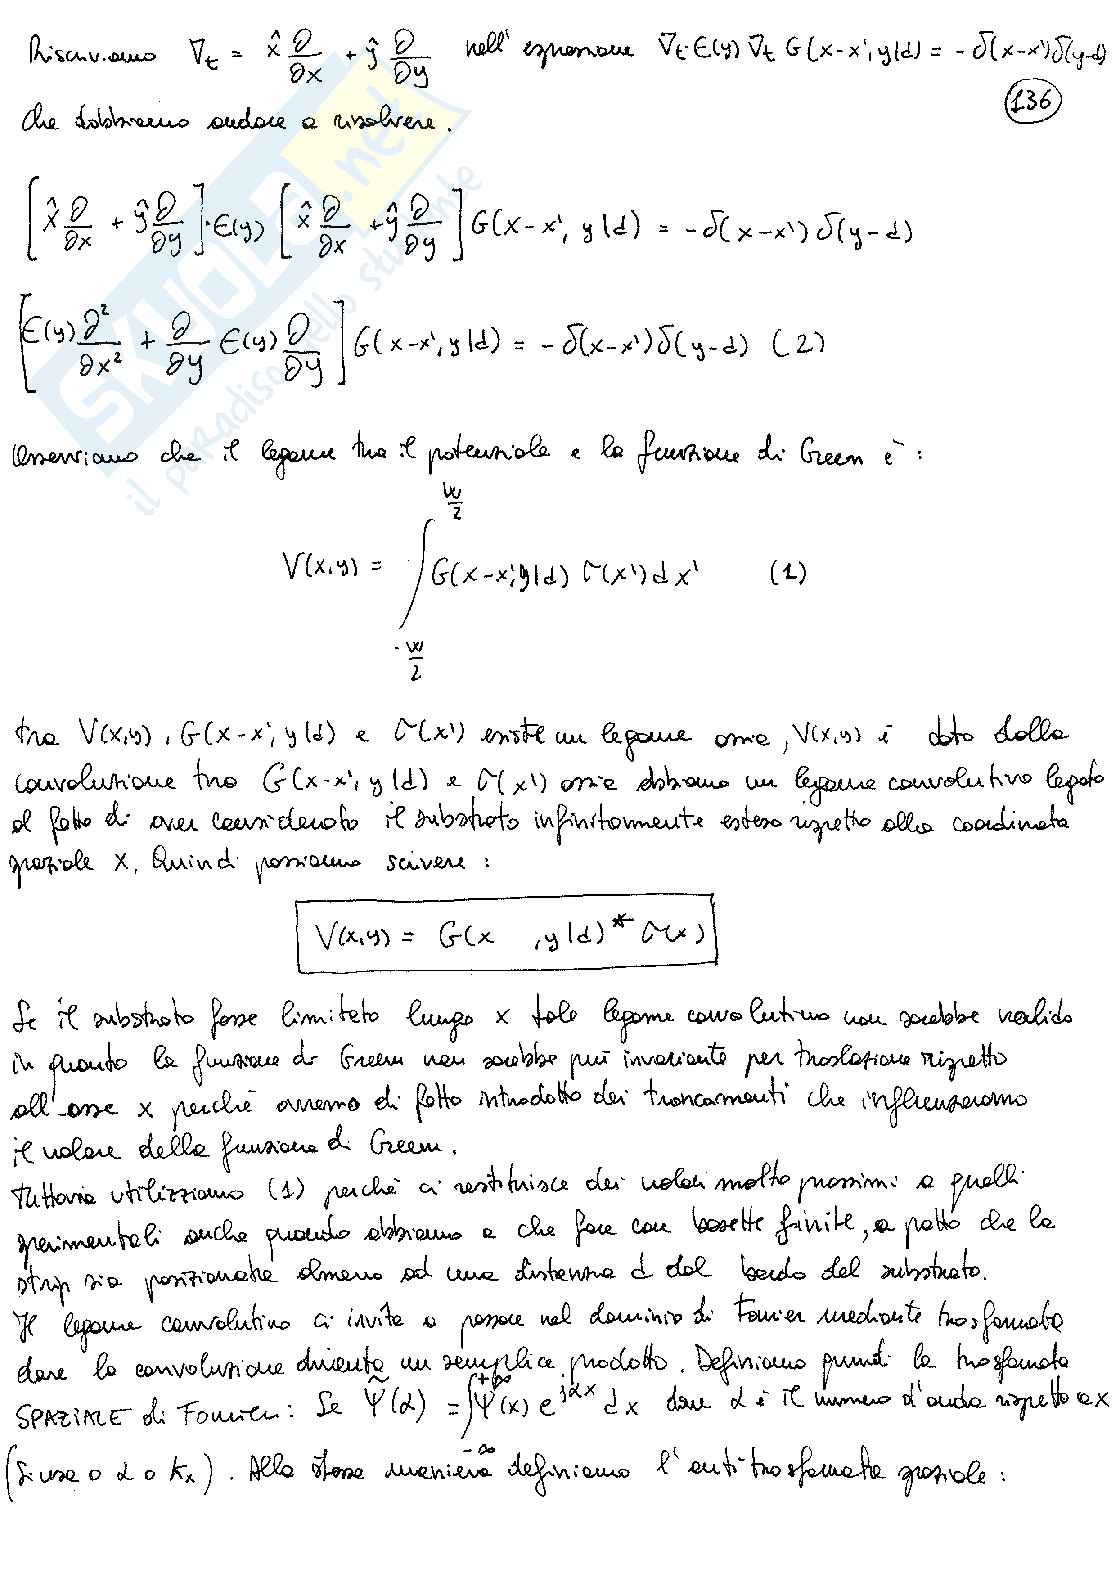 Riscriviamo ∇t = x̂ ∂/∂x + ŷ ∂/∂y nell' espressione ∇t ϵ(y) ∇t G(x-x', y|d) = - δ(x-x')δ(y-d)
136
che dobbiamo andare a risolvere.
[x̂ ∂/∂x + ŷ ∂/∂y]·ϵ(y) [x̂ ∂/∂x + ŷ ∂/∂y] G(x-x', y|d) = -δ(x-x') δ(y-d)
[ϵ(y) ∂²/∂x² + ∂/∂y ϵ(y) ∂/∂y] G(x-x', y|d) = - δ(x-x')δ(y-d) (2)
Osserviamo che il legame tra il potenziale e la funzione di Green è :
V(x,y) = ∫_{-w/2}^{w/2} G(x-x', y|d) σ(x') dx' (1)
tra V(x,y), G(x-x', y|d) e σ(x') esiste un legame ossia, V(x,y) è dato dalla
convoluzione tra G(x-x', y|d) e σ(x') ossia abbiamo un legame convolutivo legato
al fatto di aver considerato il substrato infinitamente esteso rispetto alla coordinata
spaziale x. Quindi possiamo scrivere :
V(x,y) = G(x ,y|d) * σ(x)
Se il substrato fosse limitato lungo x tale legame convolutivo non sarebbe valido
in quanto la funzione di Green non sarebbe più invariante per traslazione rispetto
all'asse x perchè avremo di fatto introdotto dei troncamenti che influenzeranno
il valore della funzione di Green.
Tuttavia utilizziamo (1) perchè ci restituisce dei valori molto prossimi a quelli
sperimentali anche quando abbiamo a che fare con basette finite, a patto che la
strip sia posizionata almeno ad una distanza d dal bordo del substrato.
Il legame convolutivo ci invita a passare nel dominio di Fourier mediante trasformata
dove la convoluzione diventa un semplice prodotto. Definiamo quindi la trasformata
SPAZIALE di Fourier: Se Ψ̃(α) = ∫_{-∞}^{+∞} Ψ(x) e^{jαx} dx dove α è il numero d'onda rispetto a x
(si usa o α o kx). Alla stessa maniera definiamo l'antitrasformata spaziale :
SKUOLA.net
il paradiso dello studente